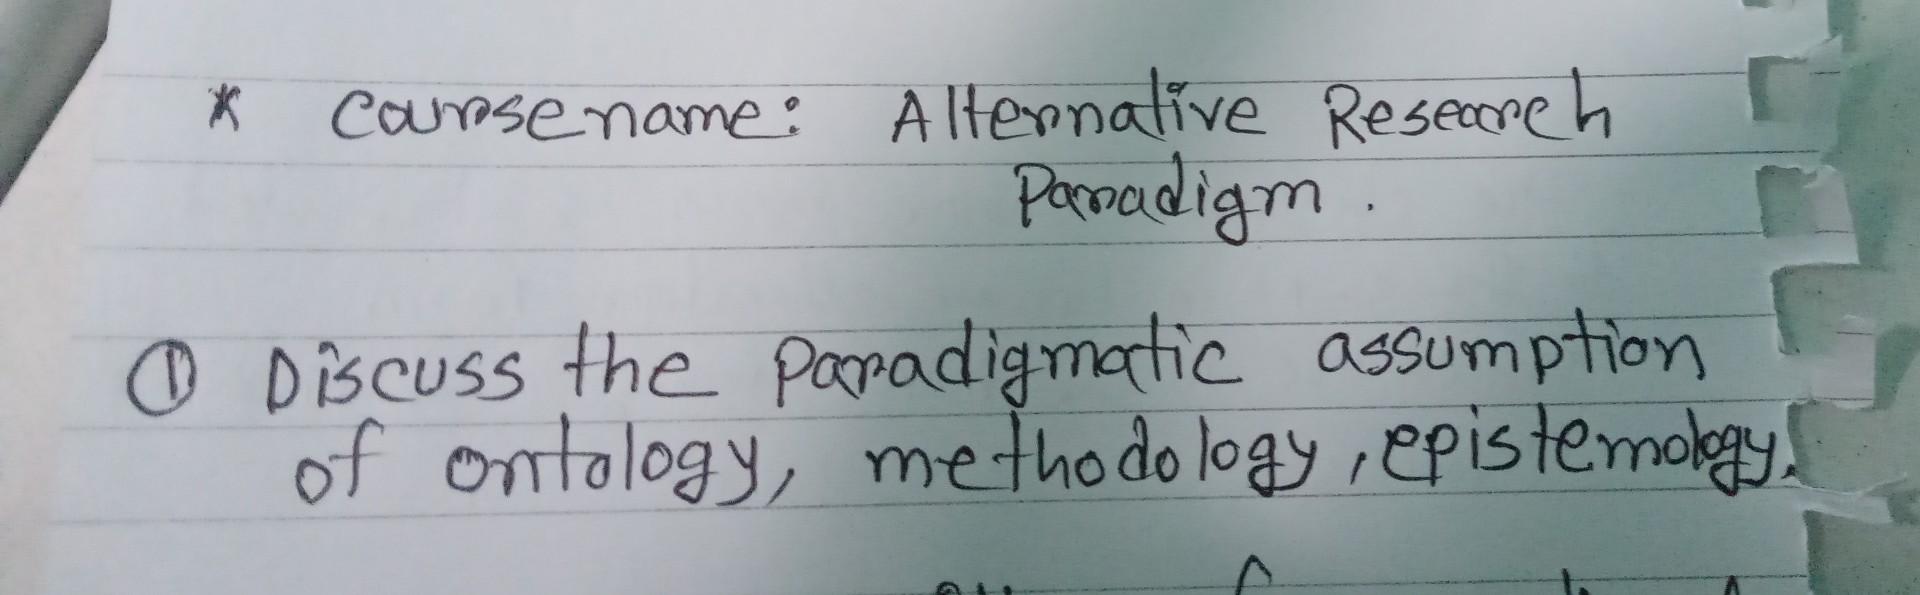 * Course name: Alternative Research
Paradigm.
① Discuss the Paradigmatic assumption
of ontology, methodology, epistemology.